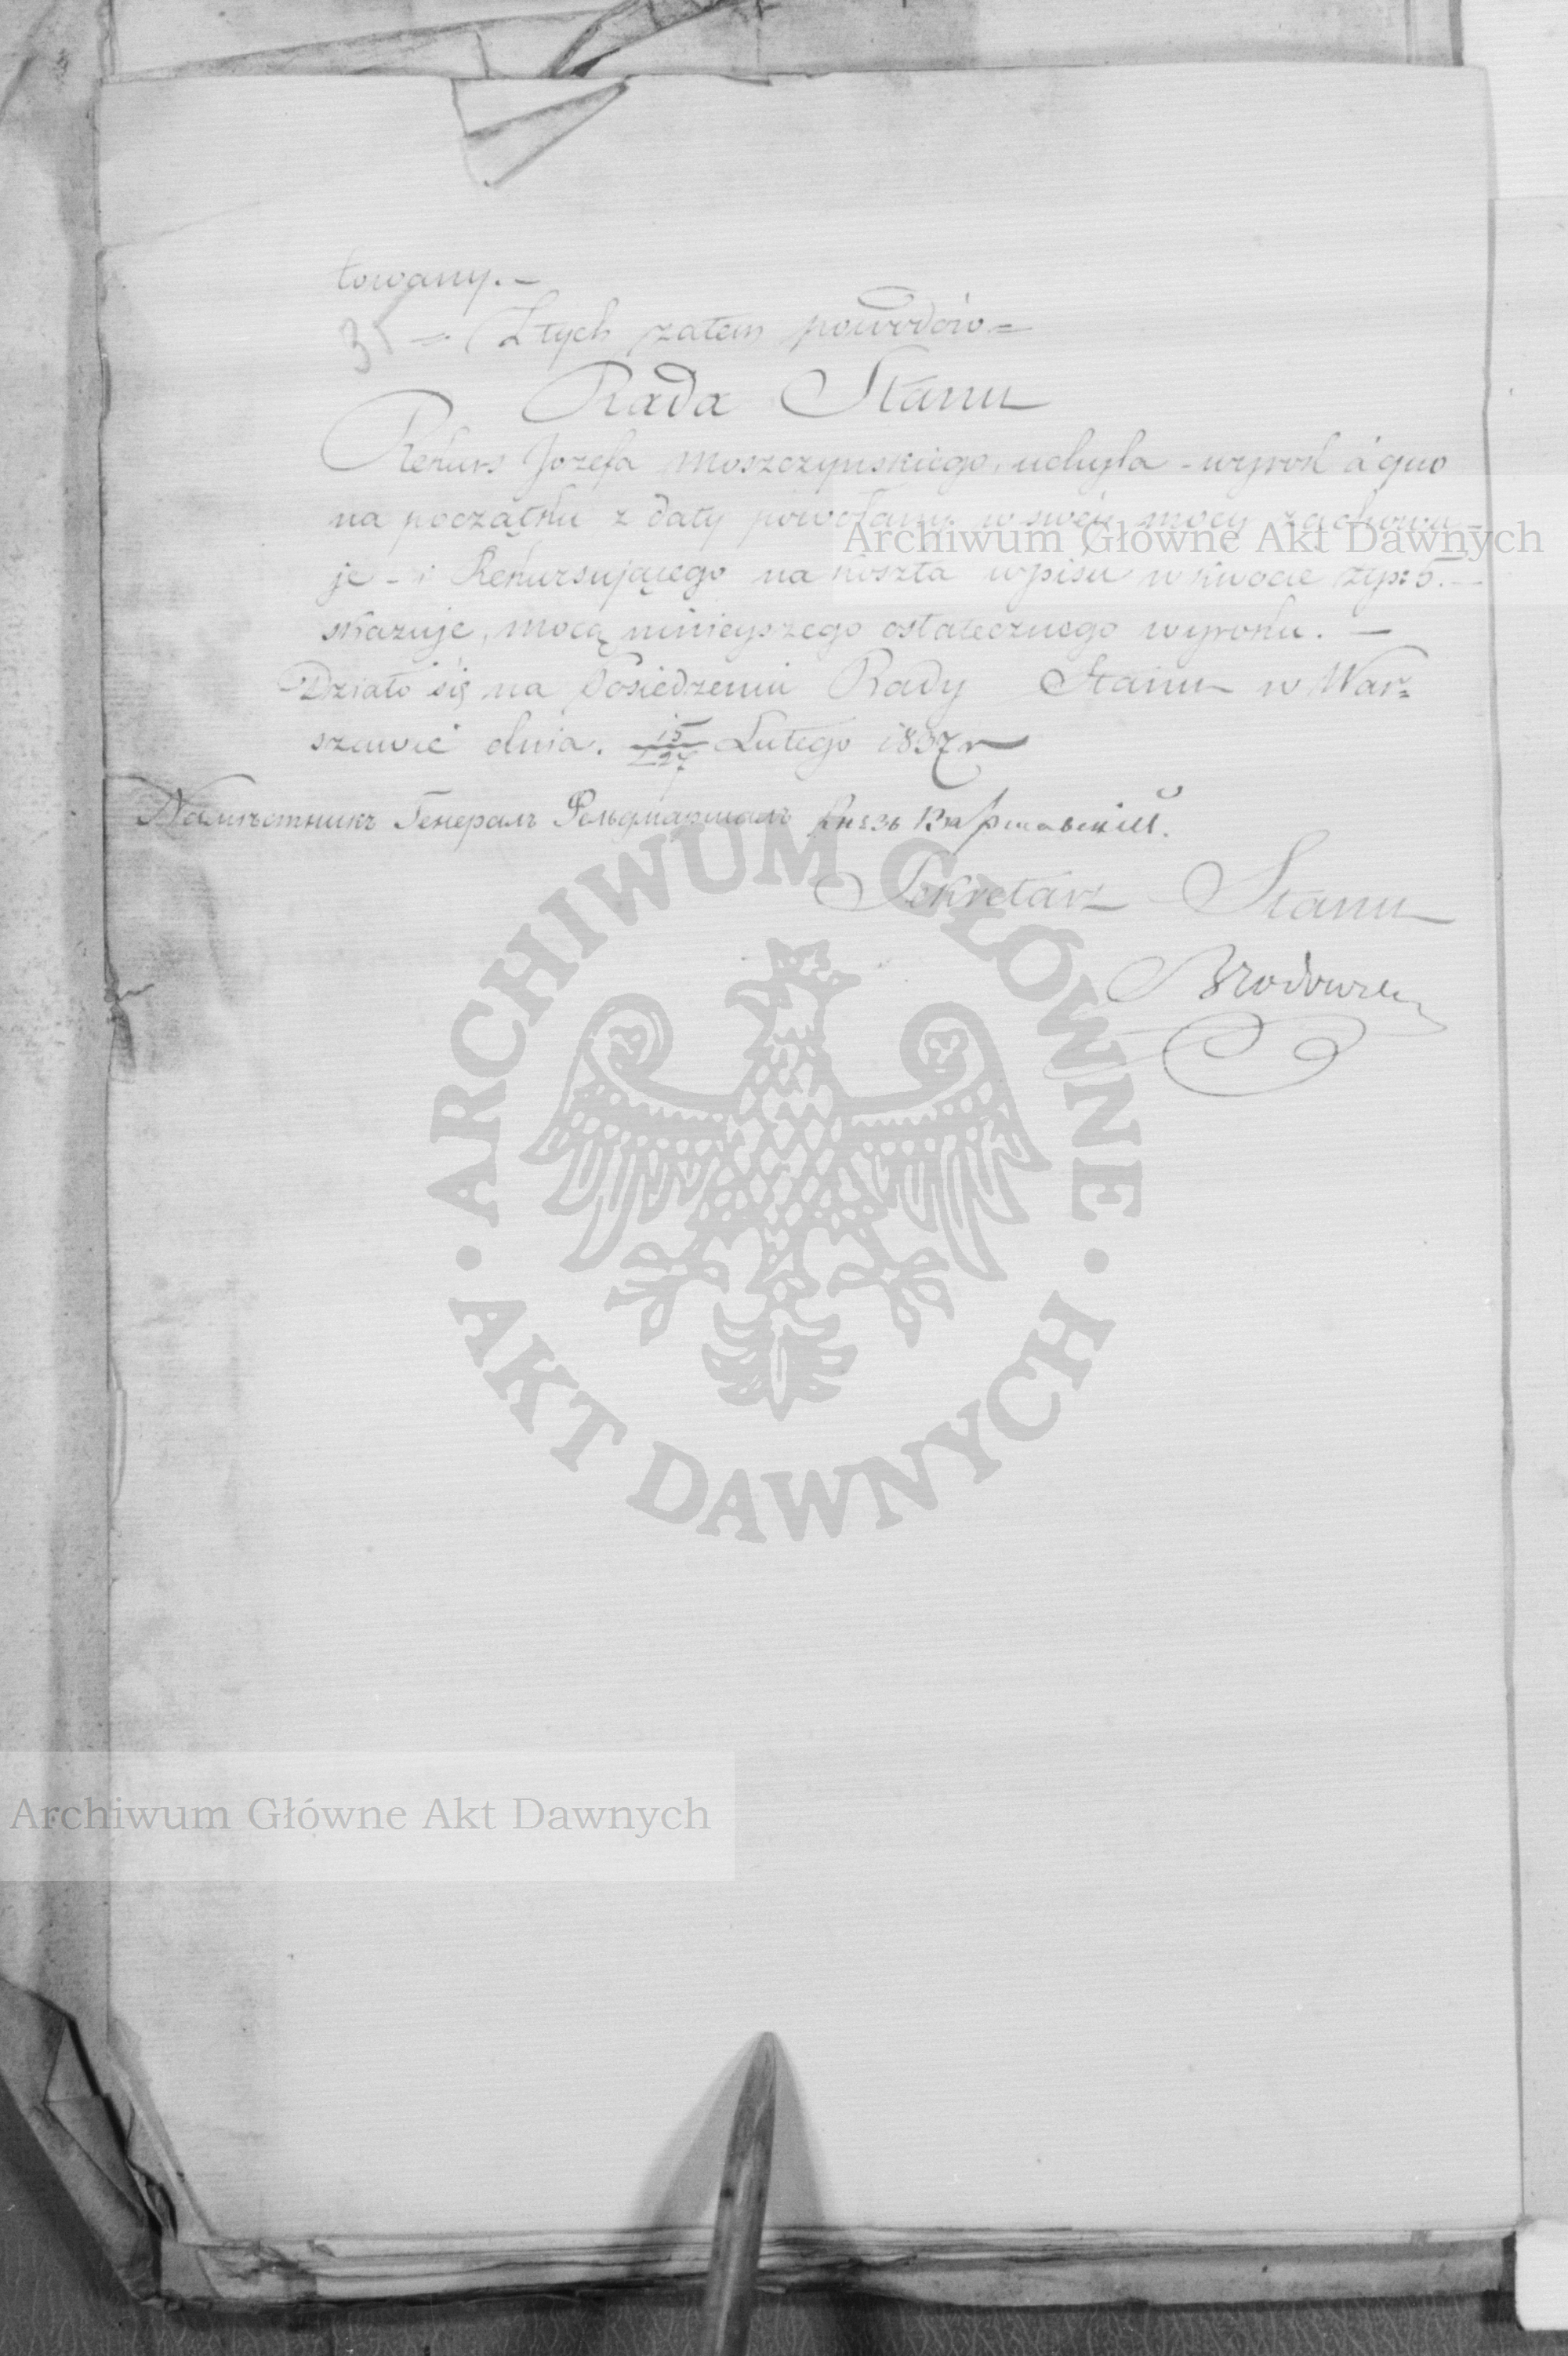 towany.—
35 = Z tych zatem powodów =
Rada Stanu
Rekurs Jozefa Moszczynskiego, uchyla - wyrok á quo
na początku z daty powołany w swéy mocy zachowu-
je - i Rekursującego na koszta wpisu w kwocie złp: 5.—
skazuje, mocą ninieyszego ostatecznego wyroku. —
Działo się na Posiedzeniu Rady Stanu w War=
szawie dnia. 15/27 Lutego 1837 r
Намѣстникъ Генералъ Фельдмаршалъ Князь Варшавскій.
Sekretarz Stanu
Brodowski
Archiwum Główne Akt Dawnych
ARCHIWUM GŁÓWNE · AKT DAWNYCH ·
Archiwum Główne Akt Dawnych